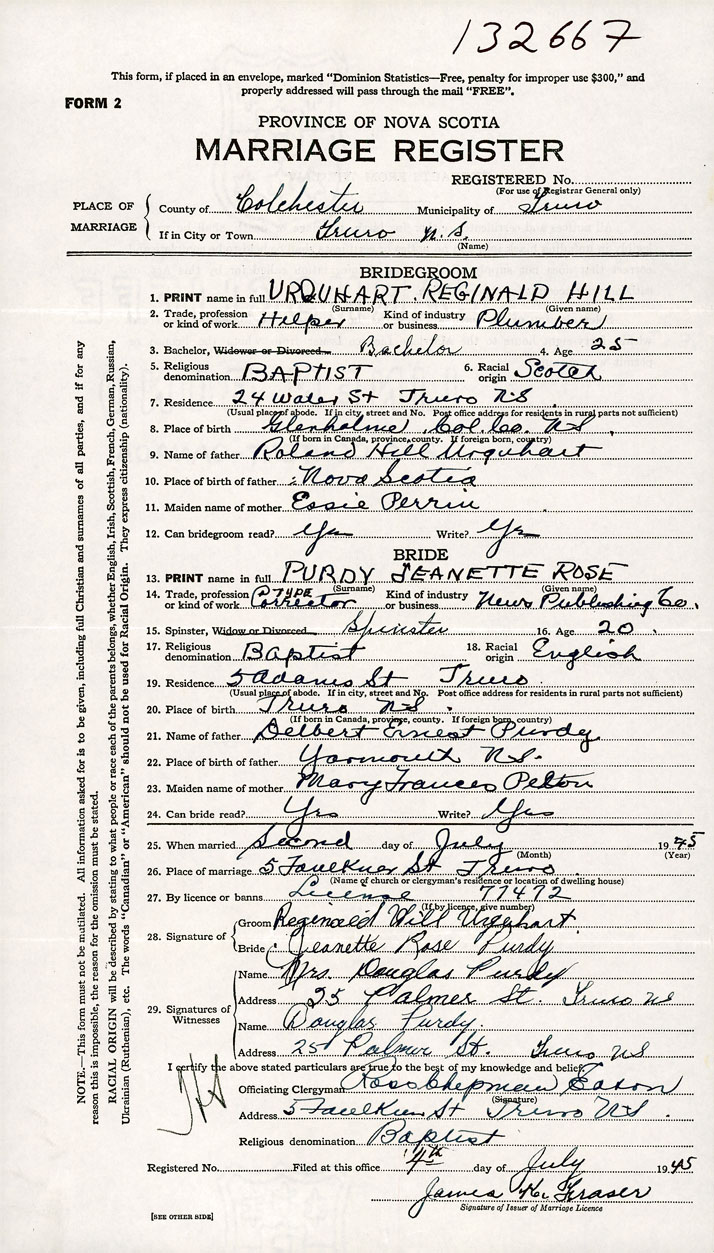 132667
This form, if placed in an envelope, marked "Dominion Statistics—Free, penalty for improper use $300," and
properly addressed will pass through the mail "FREE".
FORM 2
PROVINCE OF NOVA SCOTIA
MARRIAGE REGISTER
REGISTERED No.
(For use of Registrar General only)
PLACE OF MARRIAGE
County of Colchester Municipality of Truro
If in City or Town Truro N.S.
(Name)
BRIDEGROOM
1. PRINT name in full URQUHART. REGINALD HILL
(Surname) (Given name)
2. Trade, profession or kind of work Helper Kind of industry or business Plumber
3. Bachelor, Widower or Divorced Bachelor 4. Age 25
5. Religious denomination BAPTIST 6. Racial origin Scotch
7. Residence 24 Water St Truro N.S.
(Usual place of abode. If in city, street and No. Post office address for residents in rural parts not sufficient)
8. Place of birth Glenholme, Col. Co. N.S.
(If born in Canada, province, county. If foreign born, country)
9. Name of father Roland Hill Urquhart
10. Place of birth of father Nova Scotia
11. Maiden name of mother Essie Perrin
12. Can bridegroom read? Yes Write? Yes
BRIDE
13. PRINT name in full PURDY JEANETTE ROSE
(Surname) (Given name)
14. Trade, profession or kind of work TYPE Corrector Kind of industry or business News Publishing Co.
15. Spinster, Widow or Divorced Spinster 16. Age 20.
17. Religious denomination Baptist 18. Racial origin English
19. Residence 5 Adams St Truro
(Usual place of abode. If in city, street and No. Post office address for residents in rural parts not sufficient)
20. Place of birth Truro N.S.
(If born in Canada, province, county. If foreign born, country)
21. Name of father Delbert Ernest Purdy
22. Place of birth of father Yarmouth N.S.
23. Maiden name of mother Mary Frances Pelton
24. Can bride read? Yes Write? Yes
25. When married Second day of July 1945
(Month) (Year)
26. Place of marriage 5 Faulkner St Truro
(Name of church or clergyman's residence or location of dwelling house)
27. By licence or banns License 77472
(If by licence, give number)
28. Signature of
Groom Reginald Hill Urquhart
Bride Jeanette Rose Purdy
29. Signatures of Witnesses
Name Mrs. Douglas Purdy
Address 25 Palmer St. Truro NS
Name Douglas Purdy.
Address 25 Palmer St. Truro NS
I certify the above stated particulars are true to the best of my knowledge and belief.
Officiating Clergyman Ross Chipman Eaton
(Signature)
Address 5 Faulkner St Truro N.S.
Religious denomination Baptist
Registered No. Filed at this office 4th day of July 1945
James K. Fraser
Signature of Issuer of Marriage Licence
[SEE OTHER SIDE]
NOTE.—This form must not be mutilated. All information asked for is to be given, including full Christian and surnames of all parties, and if for any
reason this is impossible, the reason for the omission must be stated.
RACIAL ORIGIN will be described by stating to what people or race each of the parents belongs, whether English, Irish, Scottish, French, German, Russian,
Ukrainian (Ruthenian), etc. The words "Canadian" or "American" should not be used for Racial Origin. They express citizenship (nationality).